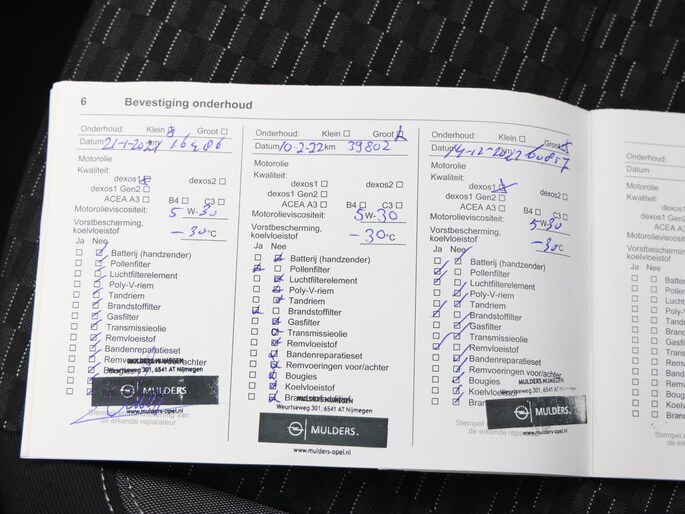 6 Bevestiging onderhoud
Onderhoud: Klein Groot
Datum 21-1-2021 km
Motorolie
Kwaliteit:
dexos1 dexos2
dexos1 Gen2
ACEA A3 B4 C3
Motorolieviscositeit:
5 W-30
Vorstbescherming,
koelvloeistof -30°C
Ja Nee
Batterij (handzender)
Pollenfilter
Luchtfilterelement
Poly-V-riem
Tandriem
Brandstoffilter
Gasfilter
Transmissieolie
Remvloeistof
Bandenreparatieset
MULDERS NIJMEGEN
Weurtseweg 301, 6541 AT Nijmegen
MULDERS.
www.mulders-opel.nl
de erkende reparateur
Onderhoud: Klein Groot
Datum 10-2-22 km 39802
Motorolie
Kwaliteit:
dexos1 dexos2
dexos1 Gen2
ACEA A3 B4 C3
Motorolieviscositeit:
5 W-30
Vorstbescherming,
koelvloeistof -30°C
Ja Nee
Batterij (handzender)
Pollenfilter
Luchtfilterelement
Poly-V-riem
Tandriem
Brandstoffilter
Gasfilter
Transmissieolie
Remvloeistof
Bandenreparatieset
Remvoeringen voor/achter
Bougies
Koelvloeistof
MULDERS NIJMEGEN
Weurtseweg 301, 6541 AT Nijmegen
MULDERS.
www.mulders-opel.nl
Onderhoud: Klein Groot
Datum 14-12-2022 60857
Motorolie
Kwaliteit:
dexos1 dexos2
dexos1 Gen2
ACEA A3 B4 C3
Motorolieviscositeit:
5 W-30
Vorstbescherming,
koelvloeistof -30°C
Ja Nee
Batterij (handzender)
Pollenfilter
Luchtfilterelement
Poly-V-riem
Tandriem
Brandstoffilter
Gasfilter
Transmissieolie
Remvloeistof
Bandenreparatieset
Remvoeringen voor/achter
Bougies
Koelvloeistof
MULDERS NIJMEGEN
Weurtseweg 301, 6541 AT Nijmegen
MULDERS.
www.mulders-opel.nl
Stempel
de erkende
Onderhoud:
Datum
Motorolie
Kwaliteit:
dexos1
dexos1 Gen2
ACEA A3
Motorolieviscositeit:
Vorstbescherming,
koelvloeistof
Ja Nee